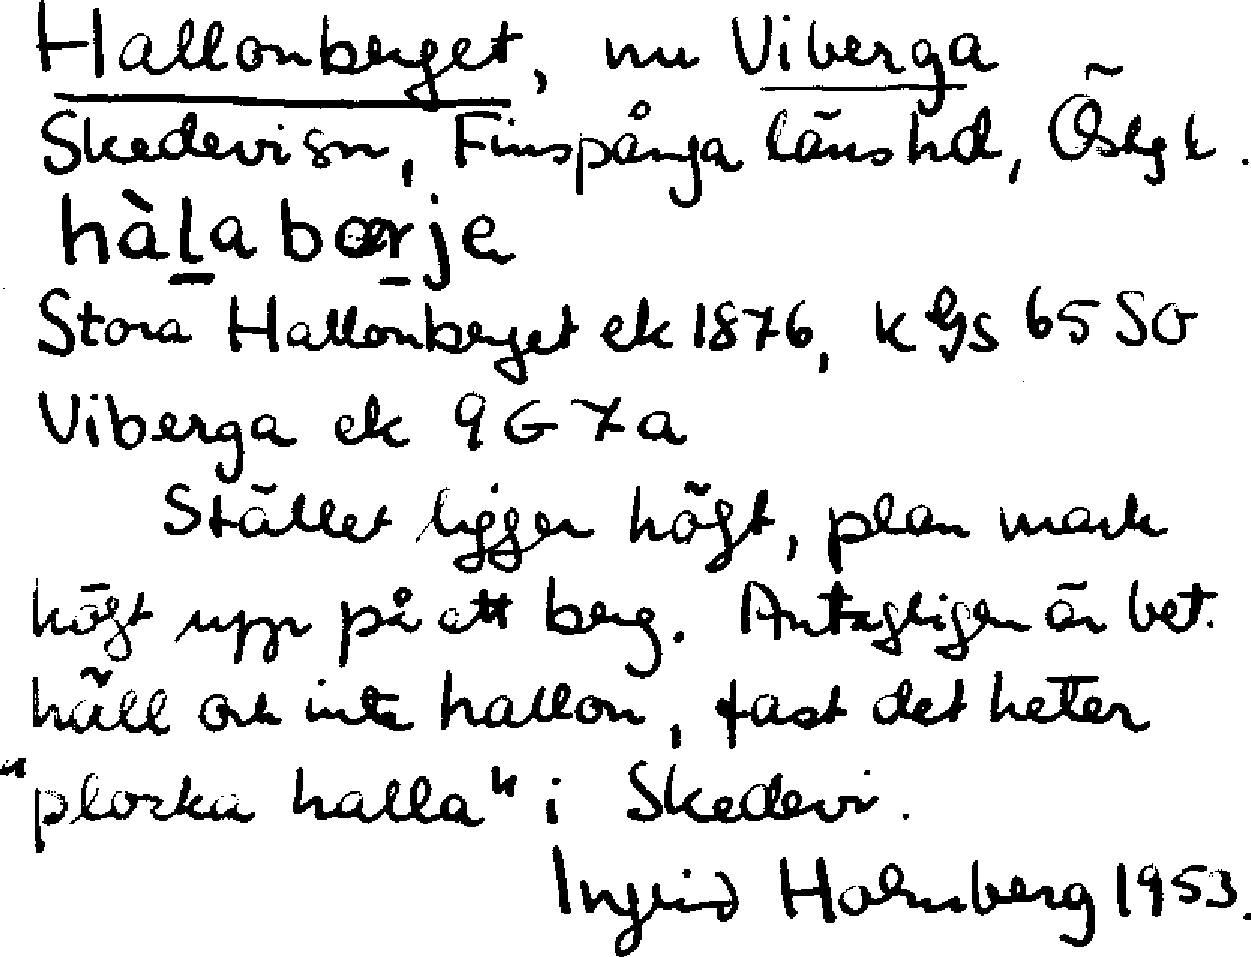 Hallonberget, nu Viberga
Skedevi sn, Finspånga läns hd, Östgt.
hàlabærje
Stora Hallonberget ek 1876, k Gs 65 SO
Viberga ek 9G7a
Stället ligger högt, plan mark
högt upp på ett berg. Antagligen är bet.
häll och inte hallon, fast det heter
"plocka halla" i Skedevi.
Ingrid Holmberg 1953.